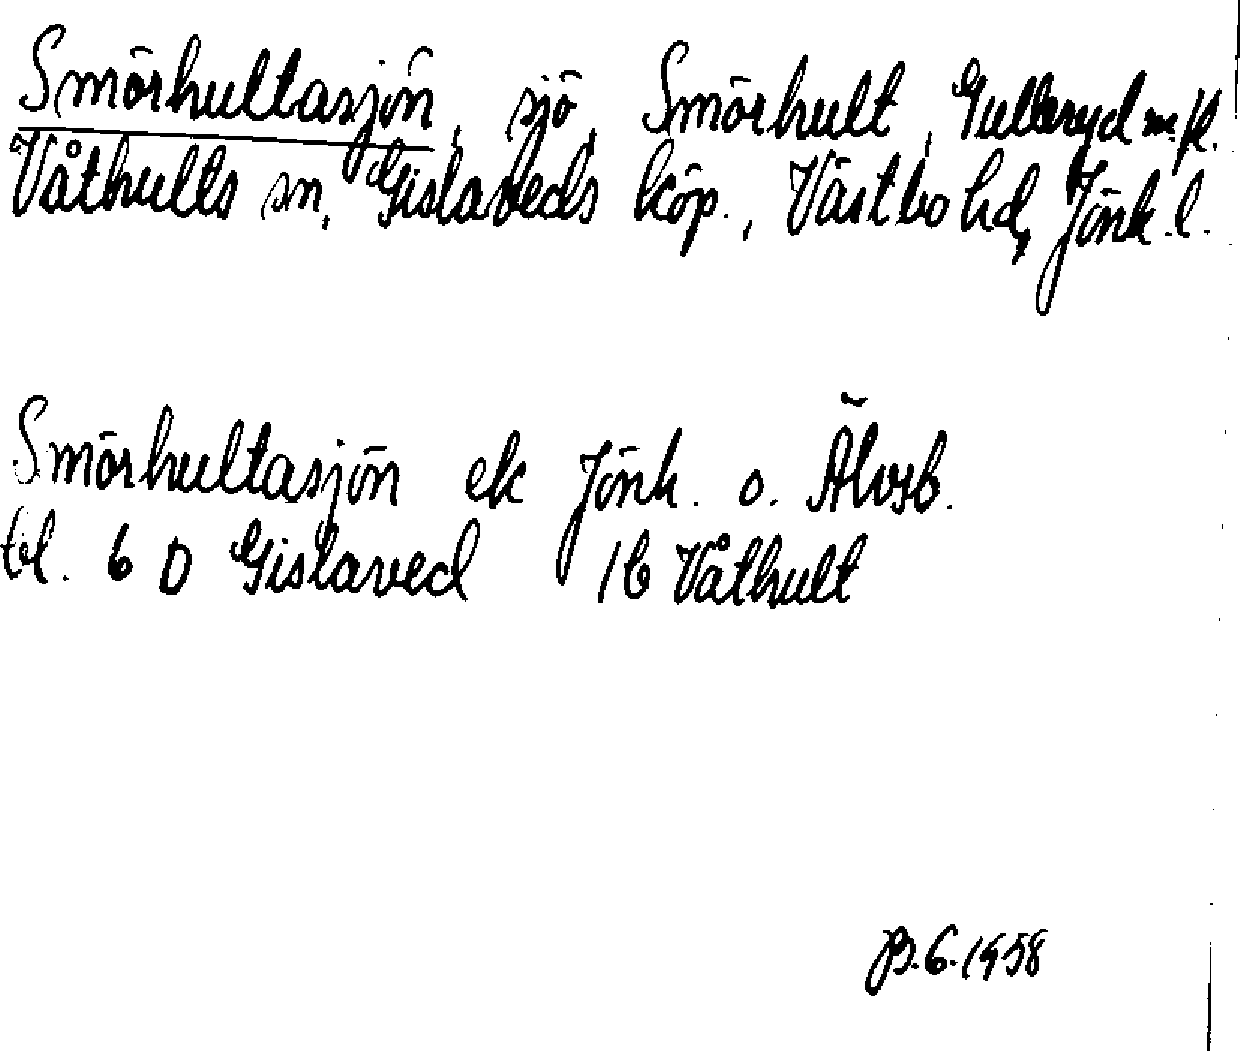 Smörhultasjön, sjö, Smörhult, Gulleryd m.fl.
Våthults sn, Gislaveds köp., Västbo hd, Jönk. l.
Smörhultasjön ek Jönk. o. Älvsb.
bl. 6 D Gislaved 1b Våthult
B.G. 1958